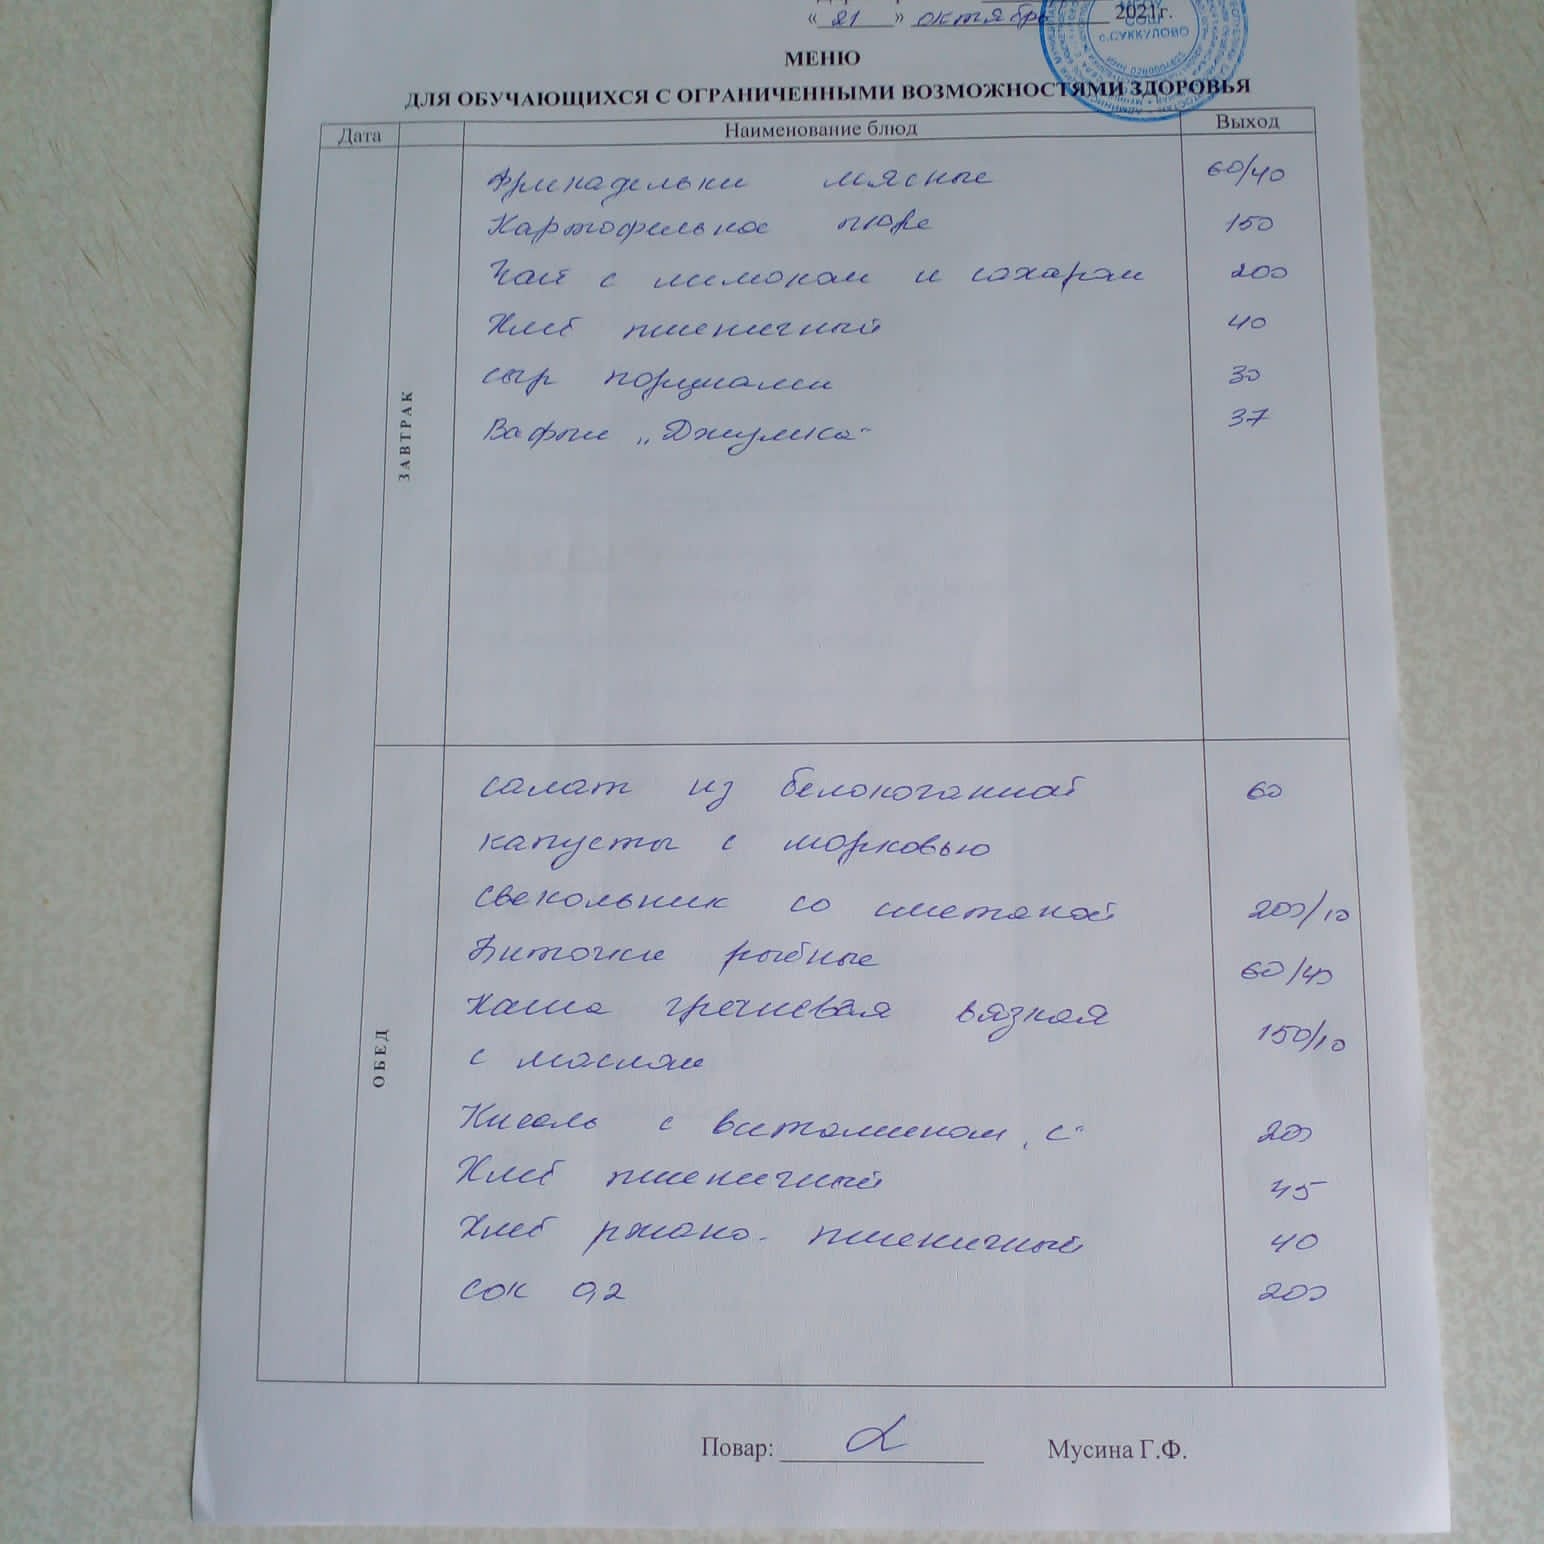 « 21 » октября 2021г.
СОШ
с.СУККУЛОВО
МЕНЮ
ДЛЯ ОБУЧАЮЩИХСЯ С ОГРАНИЧЕННЫМИ ВОЗМОЖНОСТЯМИ ЗДОРОВЬЯ
Дата Наименование блюд Выход
ЗАВТРАК
Фрикадельки мясные 60/40
Картофельное пюре 150
Чай с лимоном и сахаром 200
Хлеб пшеничный 40
сыр порциями 30
Вафли „Джумка“ 37
ОБЕД
салат из белокочанной 60
капусты с морковью
свекольник со сметаной 200/10
Биточки рыбные 60/40
Каша гречневая вязкая
с маслом 150/10
Кисель с витамином „С“ 200
Хлеб пшеничный 45
Хлеб ржано-пшеничный 40
сок 0,2 200
Повар: Мусина Г.Ф.